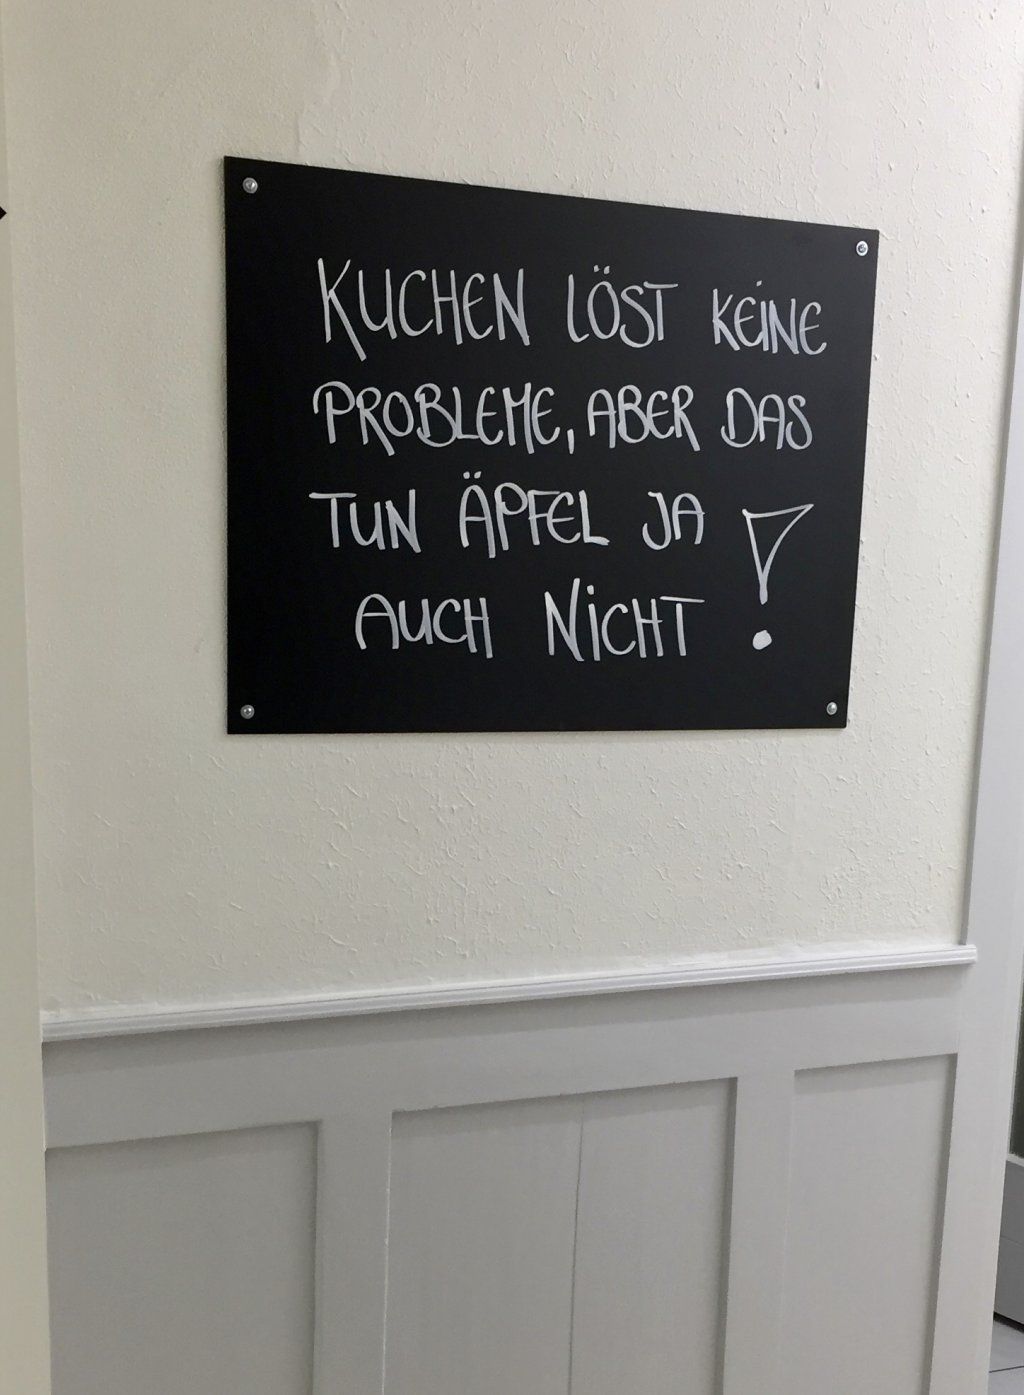 KUCHEN LÖST KEINE
PROBLEME, ABER DAS
TUN ÄPFEL JA
AUCH NICHT!